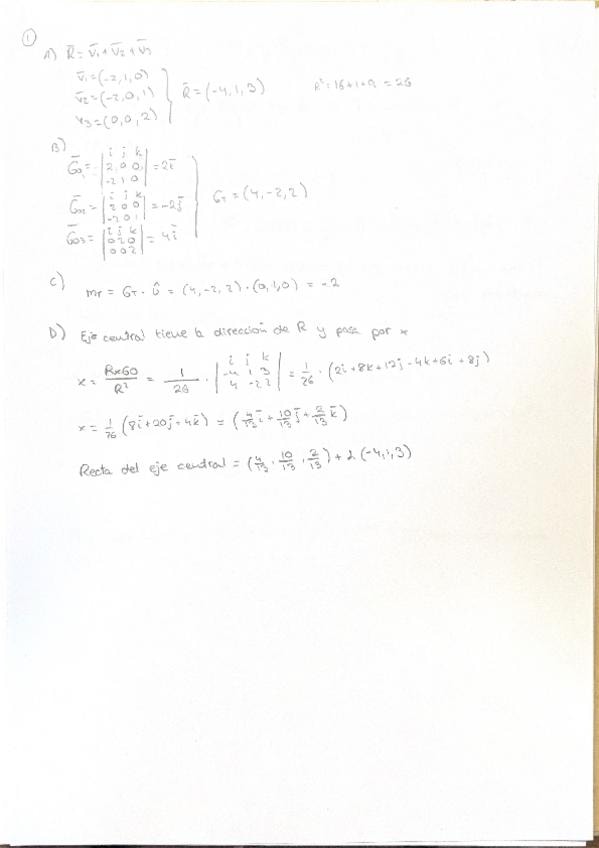 1
A) R̄ = v̄₁ + v̄₂ + v̄₃
v̄₁ = (-2, 1, 0)
v̄₂ = (-2, 0, 1) } R̄ = (-4, 1, 3) R² = 16+1+9 = 26
v₃ = (0, 0, 2)
B)
Ḡ₀₁ = | i j k ; 2 0 0 ; -2 1 0 | = 2k̄
Ḡ₀₂ = | i j k ; 2 0 0 ; -2 0 1 | = -2j̄ } G_T = (4, -2, 2)
Ḡ₀₃ = | i j k ; 0 2 0 ; 0 0 2 | = 4ī
C) m_r = G_T · û = (4, -2, 2) · (0, 1, 0) = -2
D) Eje central tiene la dirección de R y pasa por x
x = R×G0 / R² = 1/26 · | i j k ; -4 1 3 ; 4 -2 2 | = 1/26 · (2i + 8k + 12j - 4k + 6i + 8j)
x = 1/26 (8ī + 20j̄ + 4k̄) = (4/13 ī + 10/13 j̄ + 2/13 k̄)
Recta del eje central = (4/13, 10/13, 2/13) + λ (-4, 1, 3)